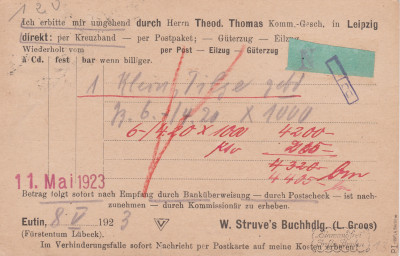 120
Ich erbitte mir umgehend durch Herrn Theod. Thomas Komm.-Gesch. in Leipzig
direkt: per Kreuzband — per Postpaket; — Güterzug — Eilzug
Wiederholt vom per Post — Eilzug — Güterzug
à Cd. fest bar wenn billiger.
1 Klein, geb
6.-/420 X 1000
6-/420 X 1000 4200-
4320-
4405-
11. Mai 1923
Betrag folgt sofort nach Empfang durch Banküberweisung — durch Postscheck — ist nach-
zunehmen — durch Kommissionär zu erheben.
Eutin, 8/V 1923 W. Struve's Buchhdlg. (L. Groos)
(Fürstentum Lübeck).
Im Verbinderungsfalle sofort Nachricht per Postkarte auf meine Kosten erbeten!